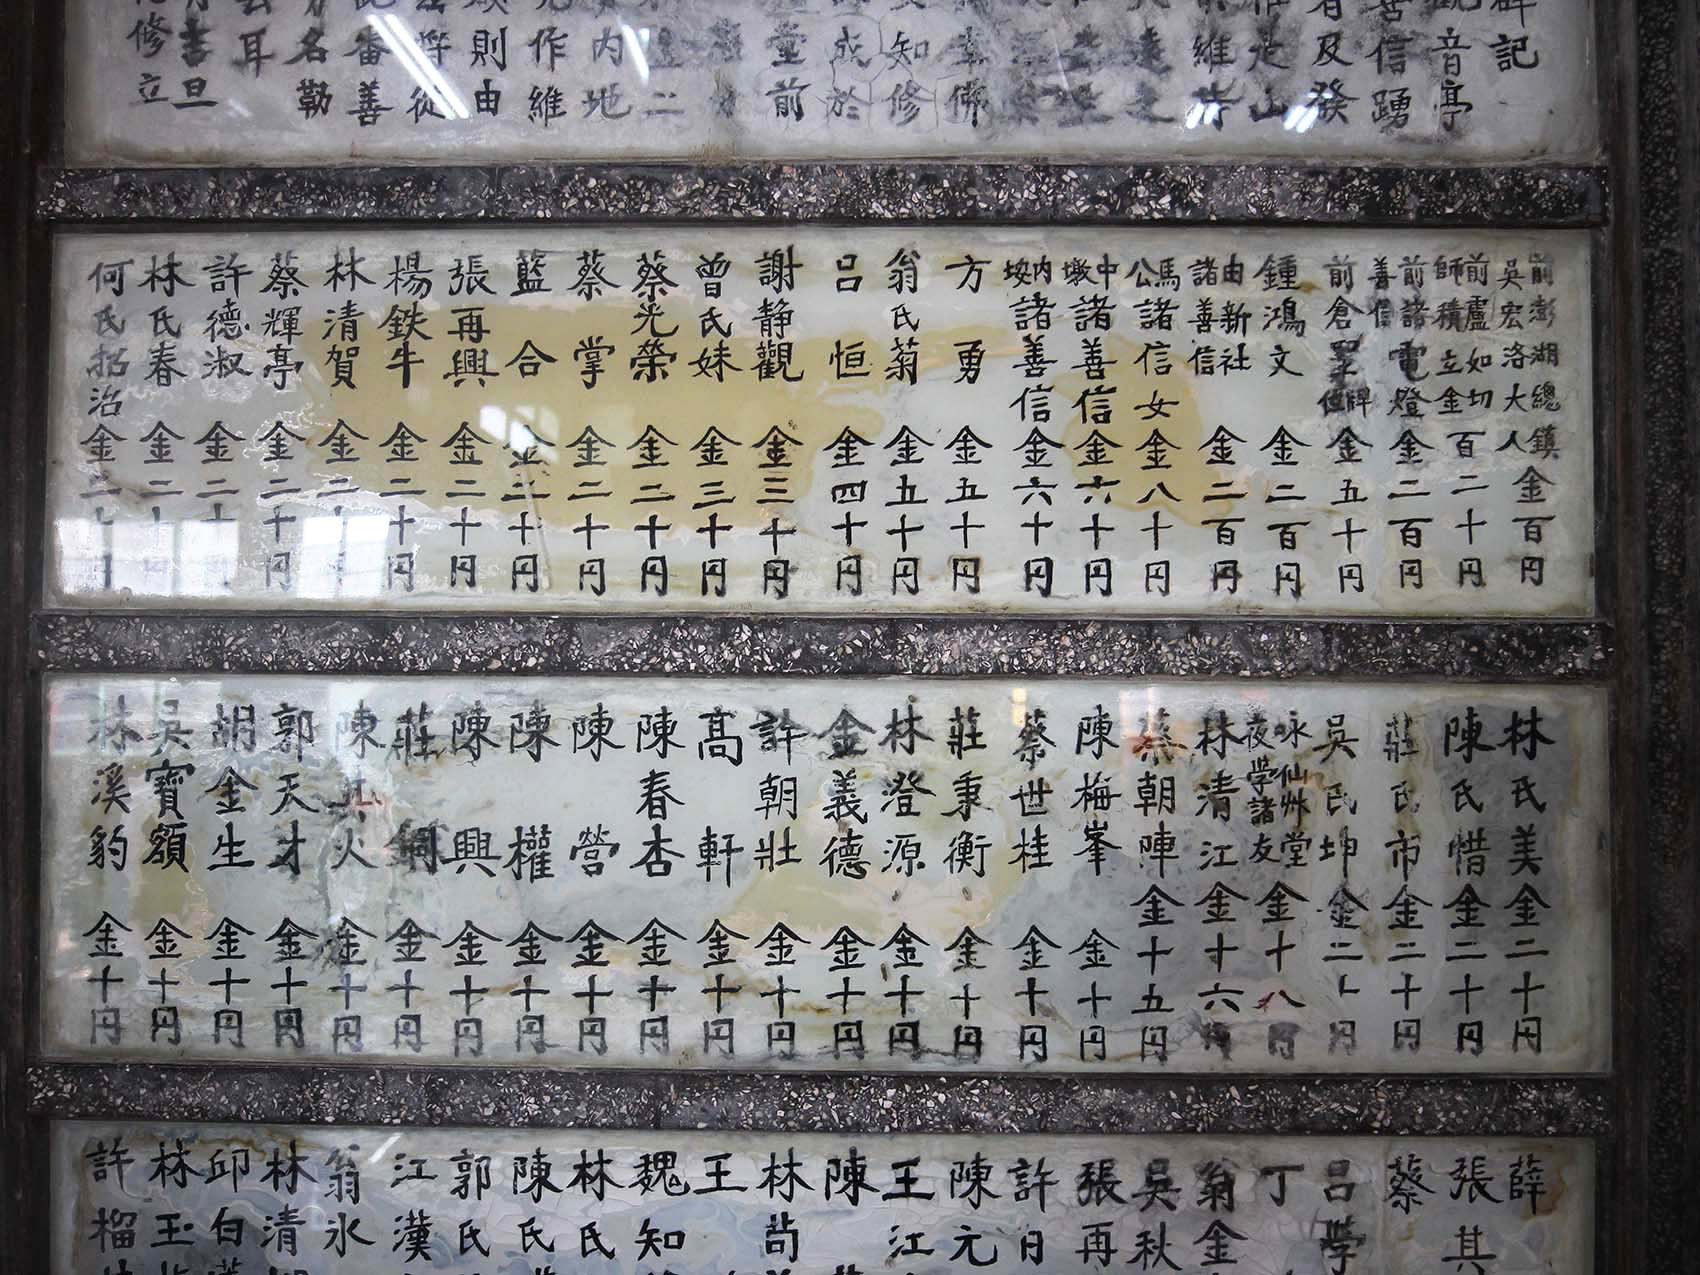 碑記
觀音亭
善信踴
者及發
維持
作維
內地
則由
名勒
耳
修立
前澎湖總鎮
吳宏洛大人 金百円
前盧如切
師積立金 百二十円
前諸電燈
善信 金二百円
前倉聖牌位 金五十円
鍾鴻文 金二百円
由新社
諸善信 金二百円
馬公諸信女 金八十円
中墩諸善信 金六十円
內垵諸善信 金六十円
方勇 金五十円
翁氏菊 金五十円
呂恒 金四十円
謝静觀 金三十円
曾氏妹 金三十円
蔡光榮 金二十円
蔡掌 金二十円
藍合 金二十円
張再興 金二十円
楊鉄牛 金二十円
林清賀 金二十円
蔡輝亭 金二十円
許德淑 金二十円
林氏春 金二十円
何氏招治 金二十円
林氏美 金二十円
陳氏惜 金二十円
莊氏市 金二十円
吳氏坤 金二十円
咏仙艸堂
夜學諸友 金十八円
林清江 金十六円
蔡朝陣 金十五円
陳梅峯 金十円
蔡世桂 金十円
莊秉衡 金十円
林澄源 金十円
金義德 金十円
許朝壯 金十円
高軒 金十円
陳春杏 金十円
陳營 金十円
陳權 金十円
陳興 金十円
莊銅 金十円
陳其火 金十円
郭天才 金十円
胡金生 金十円
吳寶額 金十円
林溪豹 金十円
薛
張其
蔡
呂學
丁
翁金
吳秋
張再
許日
陳元
王江
陳
林苟
王
魏知
林氏
陳氏
郭氏
江漢
翁氷
林清
邱白
林玉
許榴